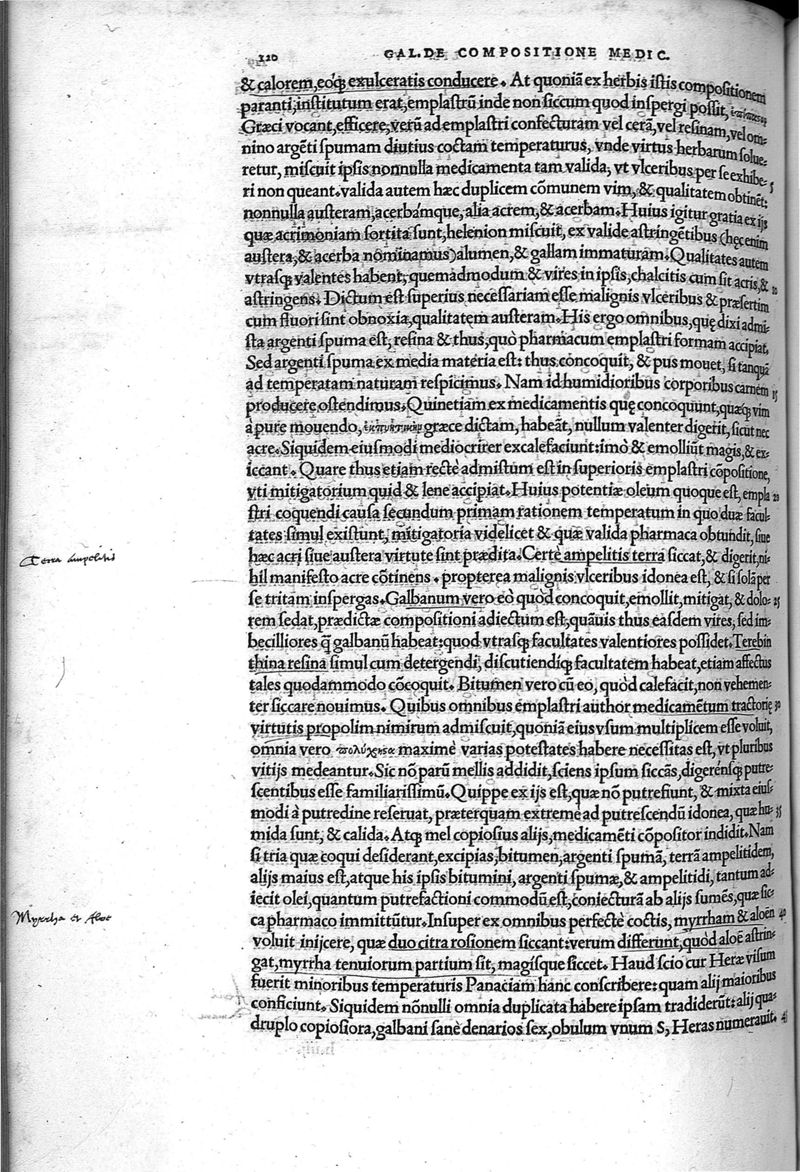 120 GAL. DE COMPOSITIONE MEDIC.
& calorem, eoq́; exulceratis conducere. At quoniã ex herbis istis compositionem
paranti, institutum erat, emplastrũ inde non siccum quod inspergi possit,
Græci vocant, efficere, verũ ad emplastri confecturam vel cerã, vel resinam, vel om-
nino argẽti spumam diutius coctam temperaturus, vnde virtus herbarum solue-
retur, miscuit ipsis nonnulla medicamenta tam valida, vt vlceribus per se exhibe-
ri non queant. valida autem hæc duplicem cõmunem vim, & qualitatem obtinẽt: 5
nonnulla austeram, acerbámque, alia acrem, & acerbam. Huius igitur gratia ex ijs
quæ acrimoniam sortita sunt, helenion miscuit, ex valide astringẽtibus (hęc enim
austera, & acerba nominamus) alumen, & gallam immaturam. Qualitates autem
vtrasq; valentes habent, quemadmodum & vires in ipsis, chalcitis cum sit acris, &
astringens. Dictum est superius necessariam esse malignis vlceribus & præsertim
cum fluori sint obnoxia, qualitatem austeram. His ergo omnibus, quę dixi admi-
sta argenti spuma est, resina & thus, quò pharmacum emplastri formam accipiat.
Sed argenti spuma ex media materia est: thus concoquit, & pus mouet, si tanquã
ad temperatam naturam respicimus. Nam id humidioribus corporibus carnem
producere ostendimus. Quinetiam ex medicamentis quę concoquunt, quæq; vim 15
à pure mouendo, græce dictam, habeãt, nullum valenter digerit, sicut nec
acre. Siquidem eiusmodi mediocriter excalefaciunt: imò & emolliũt magis, & ex-
iccant. Quare thus etiam rectè admistum est in superioris emplastri cõpositione,
vti mitigatorium quid & lene accipiat. Huius potentiæ oleum quoque est, empla 20
stri coquendi causa secundum primam rationem temperatum in quo duæ facul-
tates simul existunt, mitigatoria videlicet & quæ valida pharmaca obtundit, siue
hæc acri siue austera virtute sint prædita. Certè ampelitis terra siccat, & digerit, ni-
hil manifesto acre cõtinens. propterea malignis vlceribus idonea est, & si solã per
se tritam inspergas. Galbanum vero eò quòd concoquit, emollit, mitigat, & dolo- 25
rem sedat, prædictæ compositioni adiectum est, quãuis thus easdem vires, sed im-
becilliores q̃ galbanũ habeat: quod vtrasq; facultates valentiores possidet. Terebin
thina resina simul cum detergendi, discutiendiq; facultatem habeat, etiam affectus
tales quodammodo cõcoquit. Bitumen vero cũ eo, quòd calefacit, non vehemen-
ter siccare nouimus. Quibus omnibus emplastri author medicamẽtum tractorię 30
virtutis propolim nimirum admiscuit, quoniã eius vsum multiplicem esse voluit,
omnia vero πολύχρηστα maximè varias potestates habere necessitas est, vt pluribus
vitijs medeantur. Sic nõ parũ mellis addidit, sciens ipsum siccãs, digerẽnsq; putre-
scentibus esse familiarissimũ. Quippe ex ijs est, quæ nõ putrefiunt, & mixta eius-
modi à putredine reseruat, præterquam extreme ad putrescendũ idonea, quæ hu- 35
mida sunt, & calida. Atq; mel copiosius alijs, medicamẽti cõpositor indidit. Nam
si tria quæ coqui desiderant, excipias, bitumen, argenti spumã, terrã ampelitidem,
alijs maius est, atque his ipsis bitumini, argenti spumæ, & ampelitidi, tantum ad-
iecit olei, quantum putrefactioni commodũ est, coniecturã ab alijs sumẽs, quæ sic-
ca pharmaco immittũtur. Insuper ex omnibus perfectè coctis, myrrham & aloën 40
voluit inijcere, quæ duo citra rosionem siccant: verum differunt, quòd aloë astrin-
gat, myrrha tenuiorum partium sit, magisque siccet. Haud scio cur Heræ visum
fuerit minoribus temperaturis Panaciam hanc conscribere: quam alij maioribus
conficiunt. Siquidem nõnulli omnia duplicata habere ipsam tradiderũt: alij qua-
druplo copiosiora, galbani sanè denarios sex, obulum vnum S, Heras numerauit. 45
Terra ampelitis
Myrrha et Aloe